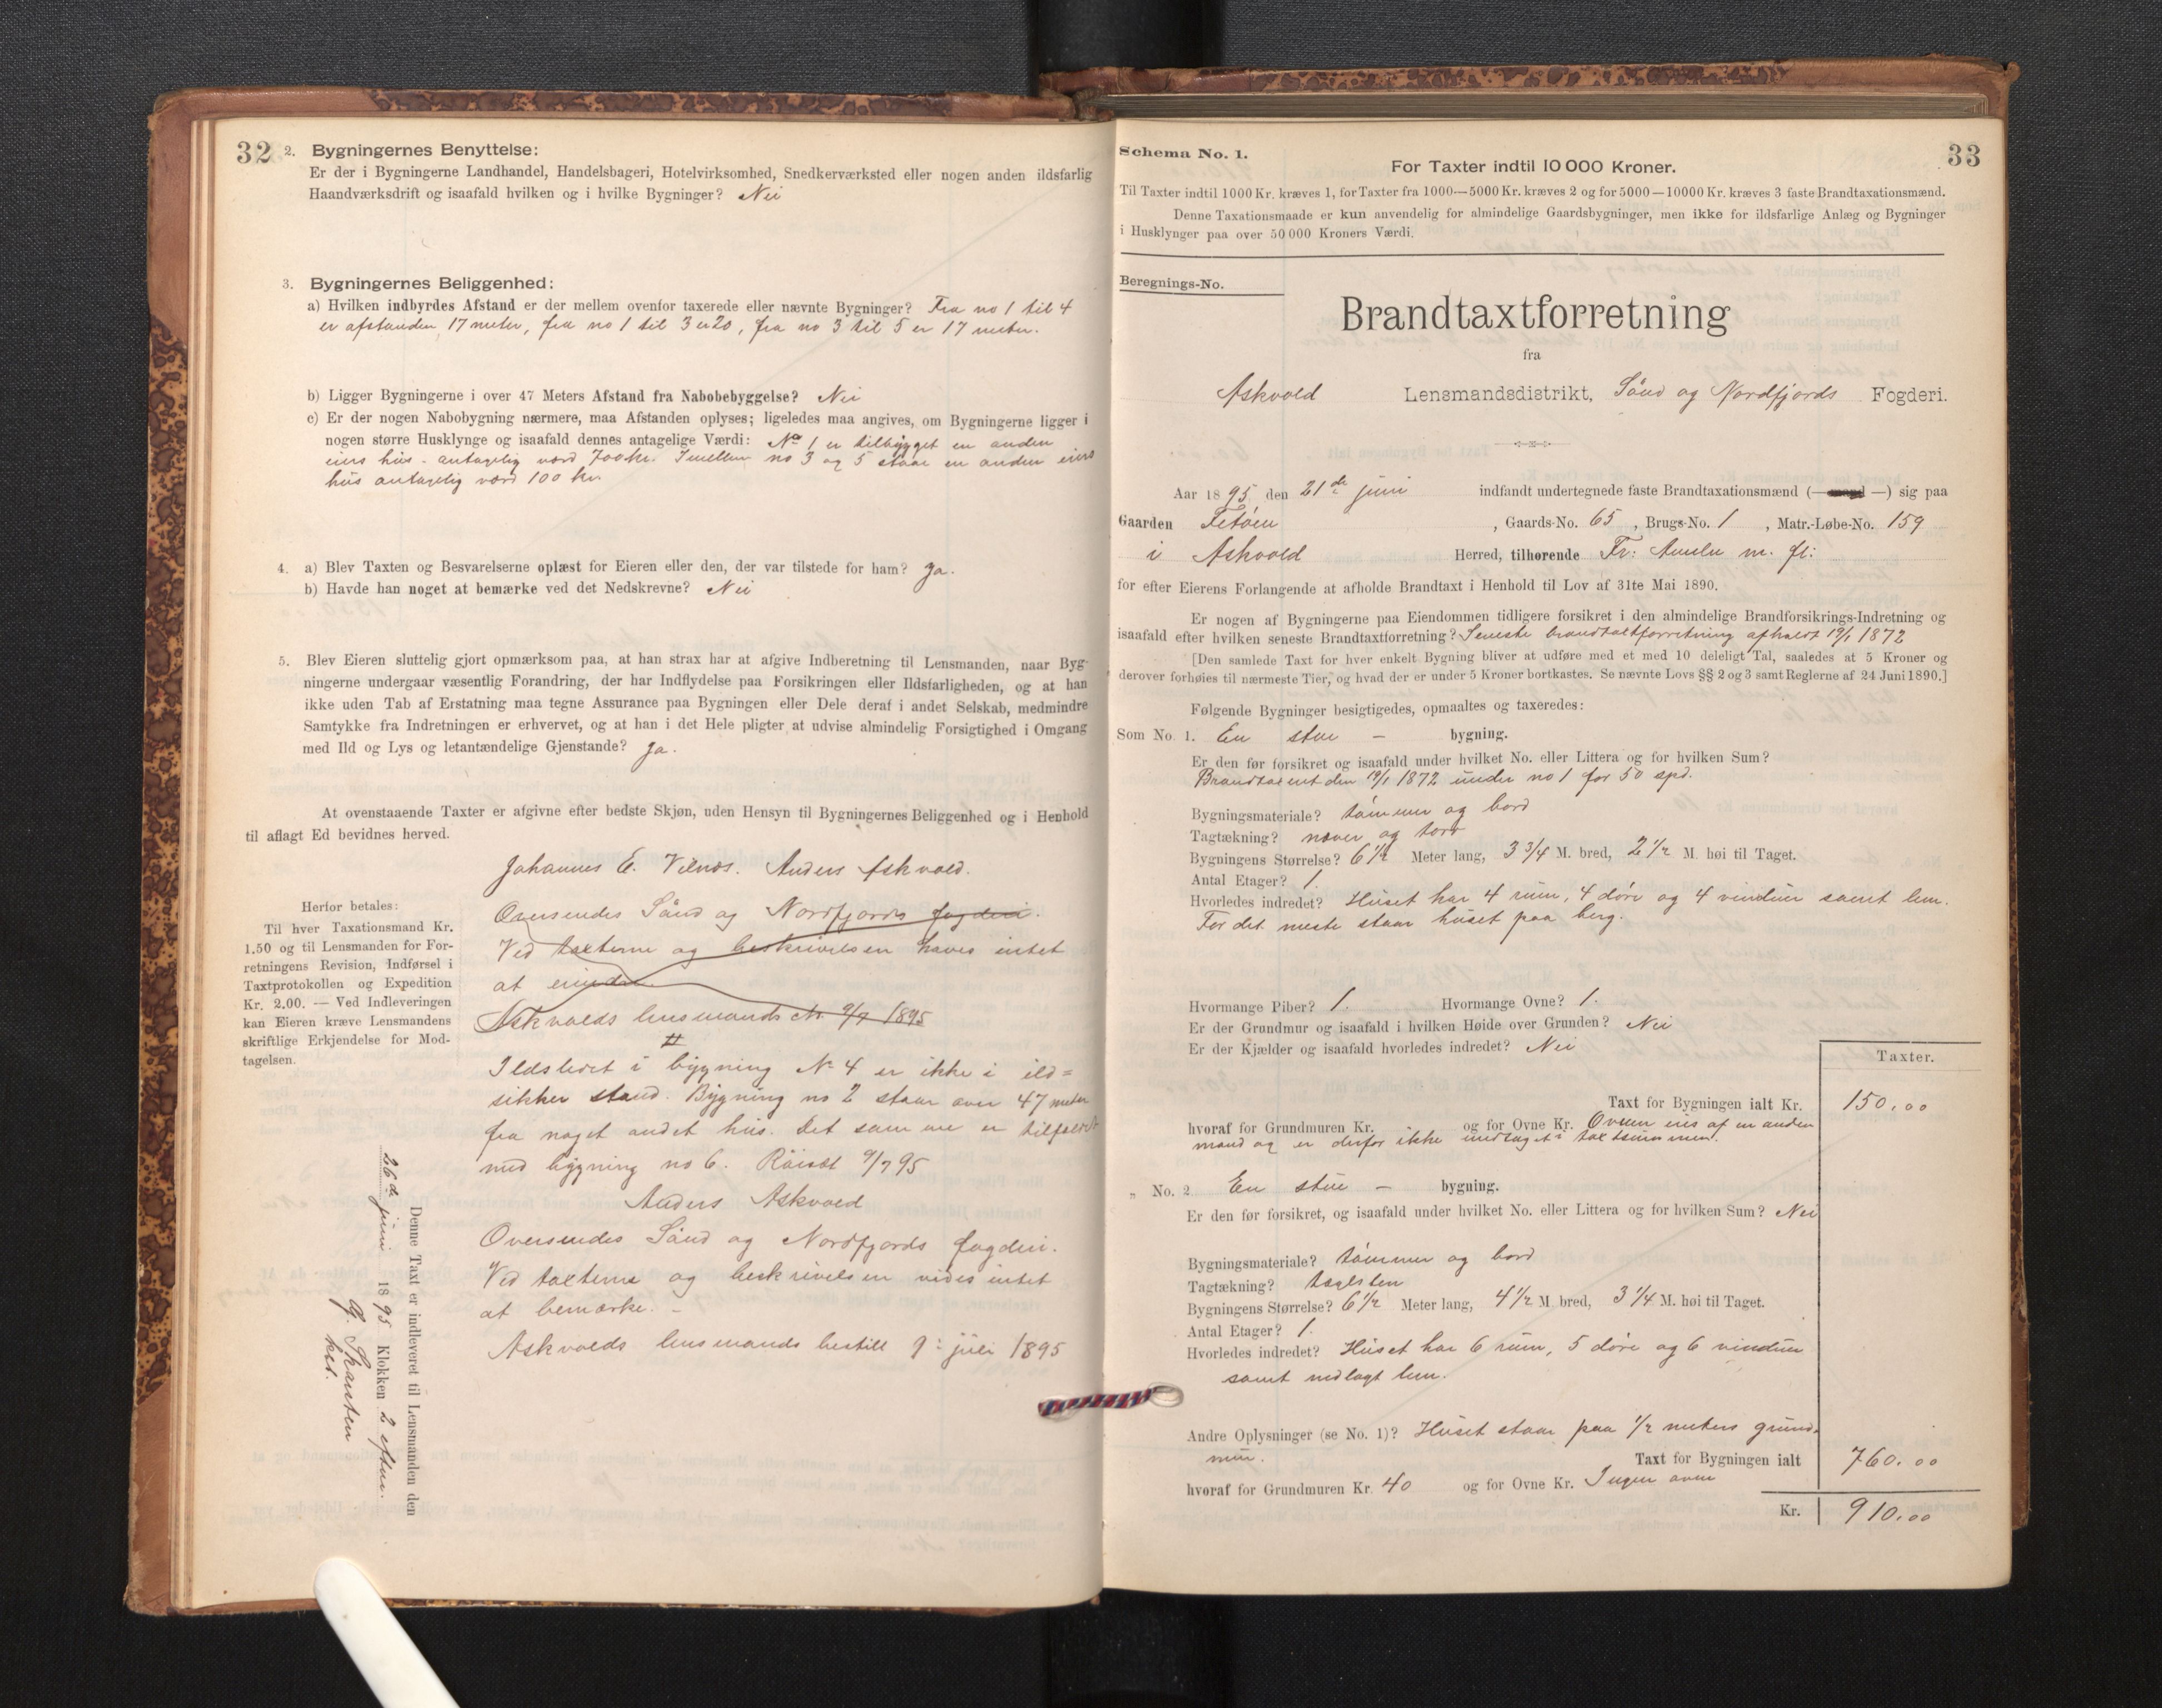 32
2. Bygningernes Benyttelse:
Er der i Bygningerne Landhandel, Handelsbageri, Hotelvirksomhed, Snedkerværksted eller nogen anden ildsfarlig
Haandværksdrift og isaafald hvilken og i hvilke Bygninger? Nei
3. Bygningernes Beliggenhed:
a) Hvilken indbyrdes Afstand er der mellem ovenfor taxerede eller nævnte Bygninger? Fra no 1 til 4
er afstanden 17 meter, fra no 1 til 3 er 20, fra no 3 til 5 er 17 meter.
b) Ligger Bygningerne i over 47 Meters Afstand fra Nabobebyggelse? Nei
c) Er der nogen Nabobygning nærmere, maa Afstanden oplyses; ligeledes maa angives, om Bygningerne ligger i
nogen større Husklynge og isaafald dennes antagelige Værdi: No 1 er tilbygget en anden
eiers hus - antagelig værd 700 kr. Imellem no 3 og 5 staar en anden eiers
hus antagelig værd 100 kr.
4. a) Blev Taxten og Besvarelserne oplæst for Eieren eller den, der var tilstede for ham? Ja.
b) Havde han noget at bemærke ved det Nedskrevne? Nei
5. Blev Eieren sluttelig gjort opmærksom paa, at han strax har at afgive Indberetning til Lensmanden, naar Byg-
ningerne undergaar væsentlig Forandring, der har Indflydelse paa Forsikringen eller Ildsfarligheden, og at han
ikke uden Tab af Erstatning maa tegne Assurance paa Bygningen eller Dele deraf i andet Selskab, medmindre
Samtykke fra Indretningen er erhvervet, og at han i det Hele pligter at udvise almindelig Forsigtighed i Omgang
med Ild og Lys og letantændelige Gjenstande? Ja.
At ovenstaaende Taxter er afgivne efter bedste Skjøn, uden Hensyn til Bygningernes Beliggenhed og i Henhold
til aflagt Ed bevidnes herved.
Johannes E. Vilnæs. Anders Askvold.
Herfor betales:
Til hver Taxationsmand Kr.
1.50 og til Lensmanden for For-
retningens Revision, Indførsel i
Taxtprotokollen og Expedition
Kr. 2.00. — Ved Indleveringen
kan Eieren kræve Lensmandens
skriftlige Erkjendelse for Mod-
tagelsen.
Oversendes Sønd og Nordfjords fogderi.
Ved taxterne og beskrivelsen haves intet
at erindre.
Askvolds lensmands 9/7 1895
#
Ildstedet i bygning No 4 er ikke i ild=
sikker stand. Bygning no 2 staar over 47 meter
fra noget andet hus. Det samme er tilfældet
med bygning no 6. 9/7 95
Anders Askvold
Oversendes Sønd og Nordfjords fogderi.
Ved taxterne og beskrivelsen vides intet
at bemærke. -
Askvolds lensmands bestill 9: juli 1895
Denne Taxt er indleveret til Lensmanden den
26de juni 1895 Klokken 2 efterm.
33
Schema No. 1.
For Taxter indtil 10 000 Kroner.
Til Taxter indtil 1000 Kr. kræves 1, for Taxter fra 1000—5000 Kr. kræves 2 og for 5000—10000 Kr. kræves 3 faste Brandtaxationsmænd.
Denne Taxationsmaade er kun anvendelig for almindelige Gaardsbygninger, men ikke for ildsfarlige Anlæg og Bygninger
i Husklynger paa over 50 000 Kroners Værdi.
Beregnings-No.
Brandtaxtforretning
fra
Askvold Lensmandsdistrikt, Sønd og Nordfjords Fogderi.
Aar 1895 den 21de juni indfandt undertegnede faste Brandtaxationsmænd (— —) sig paa
Gaarden , Gaards-No. 65, Brugs-No. 1, Matr.-Løbe-No. 159
i Askvold Herred, tilhørende Fr: m. fl:
for efter Eierens Forlangende at afholde Brandtaxt i Henhold til Lov af 31te Mai 1890.
Er nogen af Bygningerne paa Eiendommen tidligere forsikret i den almindelige Brandforsikrings-Indretning og
isaafald efter hvilken seneste Brandtaxtforretning? Seneste brandtaxtforretning afholdt 19/1 1872
[Den samlede Taxt for hver enkelt Bygning bliver at udføre med et med 10 deleligt Tal, saaledes at 5 Kroner og
derover forhøies til nærmeste Tier, og hvad der er under 5 Kroner bortkastes. Se nævnte Lovs §§ 2 og 3 samt Reglerne af 24 Juni 1890.]
Følgende Bygninger besigtigedes, opmaaltes og taxeredes:
Som No. 1. En stue - bygning.
Er den før forsikret og isaafald under hvilket No. eller Littera og for hvilken Sum?
Brandtaxert den 19/1 1872 under no 1 for 50 spd.
Bygningsmateriale? tømmer og bord
Tagtækning? næver og torv
Bygningens Størrelse? 6 1/2 Meter lang, 3 3/4 M. bred, 2 1/2 M. høi til Taget.
Antal Etager? 1.
Hvorledes indredet? Huset har 4 rum, 4 døre og 4 vinduer samt lem.
For det meste staar huset paa berg.
Hvormange Piber? 1. Hvormange Ovne? 1.
Er der Grundmur og isaafald i hvilken Høide over Grunden? Nei
Er der Kjælder og isaafald hvorledes indredet? Nei
Taxter.
Taxt for Bygningen ialt Kr. 150.00
hvoraf for Grundmuren Kr. og for Ovne Kr. Ovnen eies af en anden
mand og er derfor ikke indtaget i taxtsummen.
„ No. 2 En stue - bygning.
Er den før forsikret, og isaafald under hvilket No. eller Littera og for hvilken Sum? Nei
Bygningsmateriale? tømmer og bord
Tagtækning? taglsten
Bygningens Størrelse? 6 1/2 Meter lang, 4 1/2 M bred, 3 1/4 M. høi til Taget.
Antal Etager? 1.
Hvorledes indredet? Huset har 6 rum, 5 døre og 6 vinduer
samt nedlagt lem.
Andre Oplysninger (se No. 1)? Huset staar paa 1/2 meters grund-
mur.
Taxt for Bygningen ialt 760.00
hvoraf for Grundmuren Kr. 40 og for Ovne Kr. Ingen ovne
Kr. 910.00